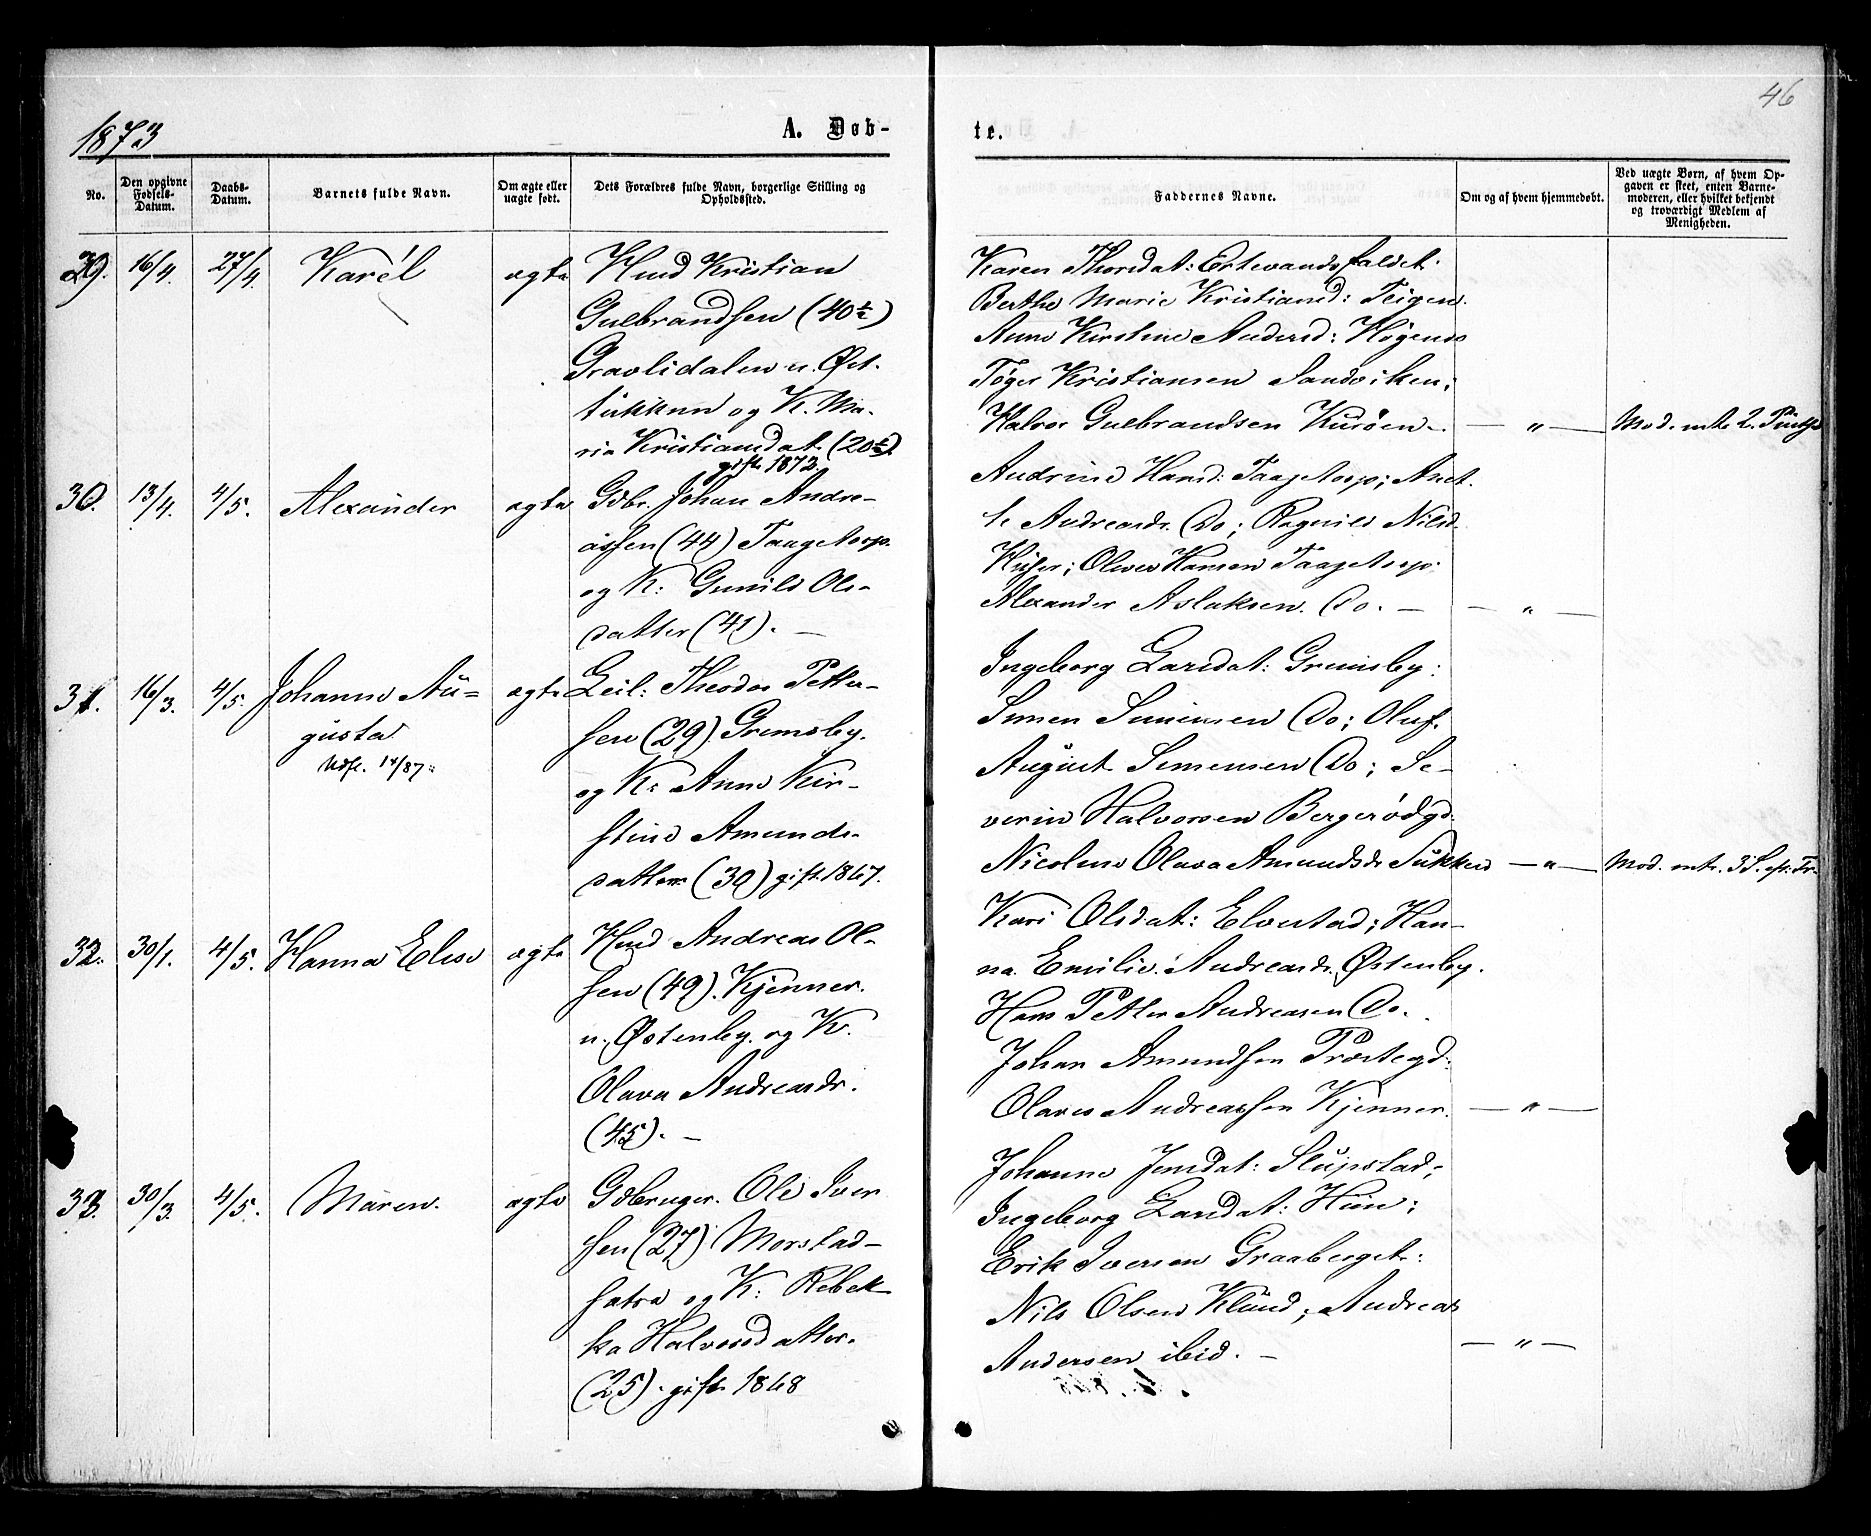 46
1873
A. Døb-
te.
No.
Den opgivne Fødsels-Datum.
Daabs-Datum.
Barnets fulde Navn.
Om ægte eller uægte født.
Dets Forældres fulde Navn, borgerlige Stilling og Opholdssted.
Faddernes Navne.
Om og af hvem hjemmedøbt.
Ved uægte Børn, af hvem Opgaven er skeet, enten Barnemoderen, eller hvilket bekjendt og troværdigt Medlem af Menigheden.
29. 16/4. 27/4. Karel ægte
Hmd Kristian
Gulbrandsen (40½)
Gravlidalen u. Øst.
Sukken og K. Ma-
ria Kristiansdat. (20½)
gift 1872.
Karen Thorsdat:
Berthe Marie Kristiansd: Teigen.
Anne Kirstine Andersd:
Kristiansen Sandviken;
Halvor Gulbrandsen — " —
Mod. intr. 2.
30. 13/4. 4/5. Alexander ægte
Gdbr. Johan Andre-
assen (44) Taagetorp.
og K: Gunild Ols-
datter (41). —
Andrine Hansd: Taagetorp; Anet-
te Andreasdr. Do; Ragnild Nilsd.
Huser; Oluves Hansen Taagetorp.
Alexander Aslaksen. Do. — — " —
31. 16/3. 4/5. Johanne Au- ægte
gusta
Udfl. 14/87.
Leil: Theodor Petter-
sen (29) Gremsby.
og K: Anne Kir-
stine Amunds-
datter (30) gift 1867.
Ingeborg Larsdat: Gremsby:
Simen Simensen Do; Oluf.
August Simensen Do; Se-
verin Halvorsen Bergerødgd.
Nicoline Olava Amundsdr Sukken — " —
Mod. intr. 3 S. eft. Tr.
32. 30/1. 4/5. Hanna Elise ægte
Hmd Andreas Ol-
sen (49). Kjenner.
u. Østenby. og K.
Olava Andreasdr.
(45). —
Kari Olsdat: Elvestad; Han-
na Emilie Andreasdr. Østenby.
Hans Petter Andreasen Do.
Johan Amundsen Præstegd.
Olaves Andreassen Kjenner. — " —
33. 30/3. 4/5. Maren. ægte
Gdbruger. Ole Iver
sen (27) Morstad-
sætra og K: Rebek
ka Halvorsdatter.
(25). gift 1868
Johanne Jensdat: Slupstad;
Ingeborg Larsdat: Hun;
Erik Iversen Graaberget:
Nils Olsen Klund; Andreas
Andersen ibid. — — " —